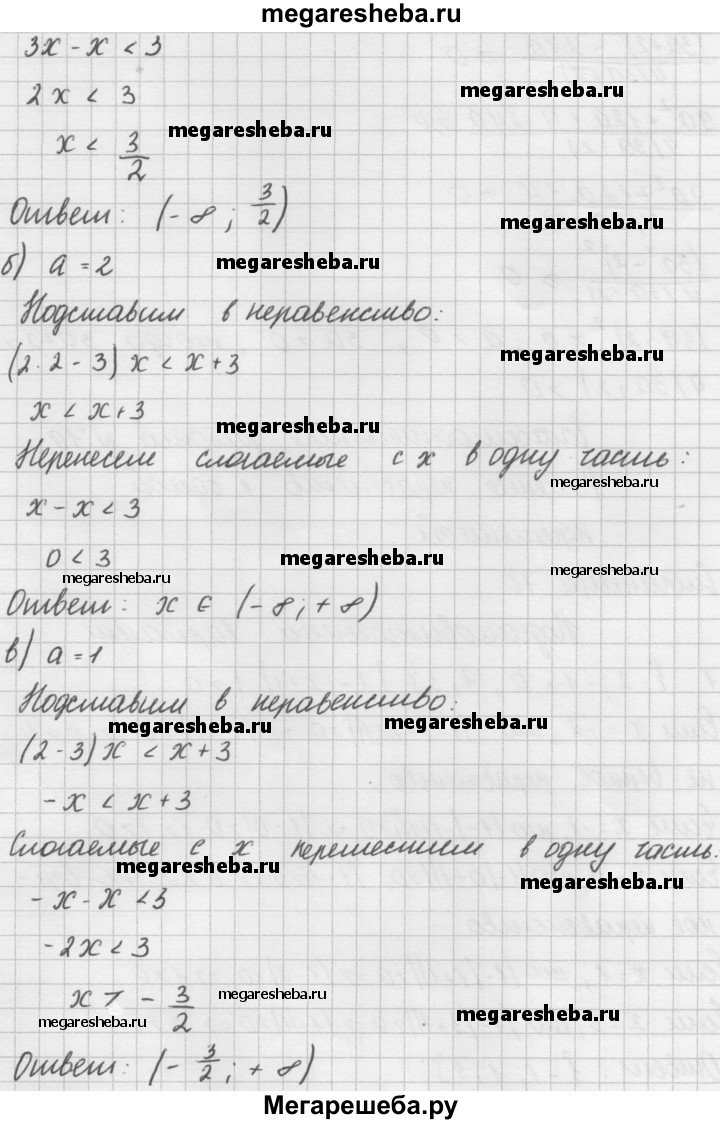 megaresheba.ru
3x - x < 3
2x < 3
megaresheba.ru
x < 3/2
megaresheba.ru
Ответ: (-∞; 3/2)
megaresheba.ru
б) a = 2
megaresheba.ru
Подставим в неравенство:
(2·2 - 3) x < x + 3
megaresheba.ru
x < x + 3
megaresheba.ru
Перенесем слагаемые с x в одну часть:
megaresheba.ru
x - x < 3
0 < 3
megaresheba.ru
megaresheba.ru
megaresheba.ru
Ответ: x ∈ (-∞; +∞)
в) a = 1
Подставим в неравенство:
megaresheba.ru
megaresheba.ru
(2 - 3) x < x + 3
-x < x + 3
Слагаемые с x переместим в одну часть:
megaresheba.ru
megaresheba.ru
-x - x < 3
-2x < 3
x > -3/2
megaresheba.ru
megaresheba.ru
megaresheba.ru
Ответ: (-3/2; +∞)
Мегарешеба.ру